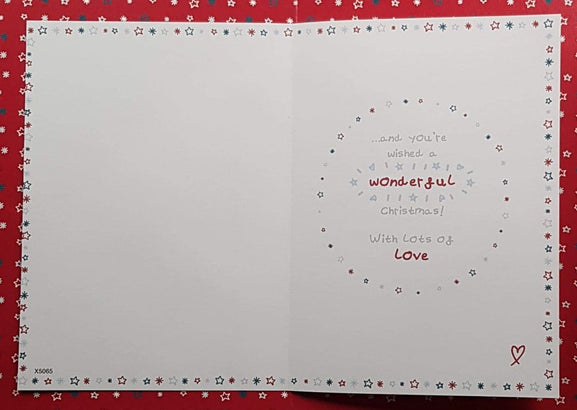 ...and you're
wished a
wonderful
Christmas!
With lots of
Love
X5065